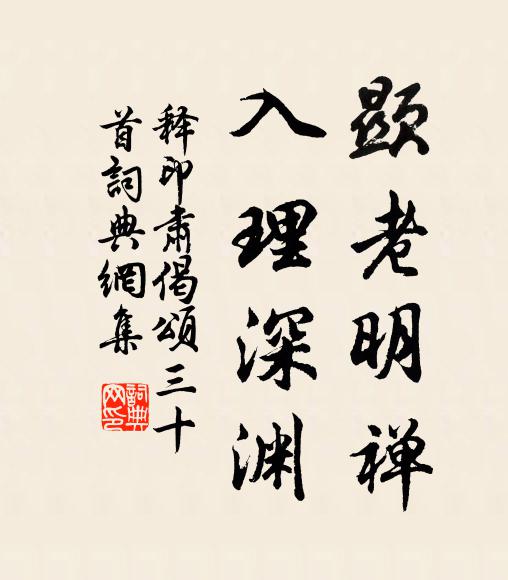 顯老明禅
入理深渊
释印肃偈頌三十
首詞典網集
詞典
网印